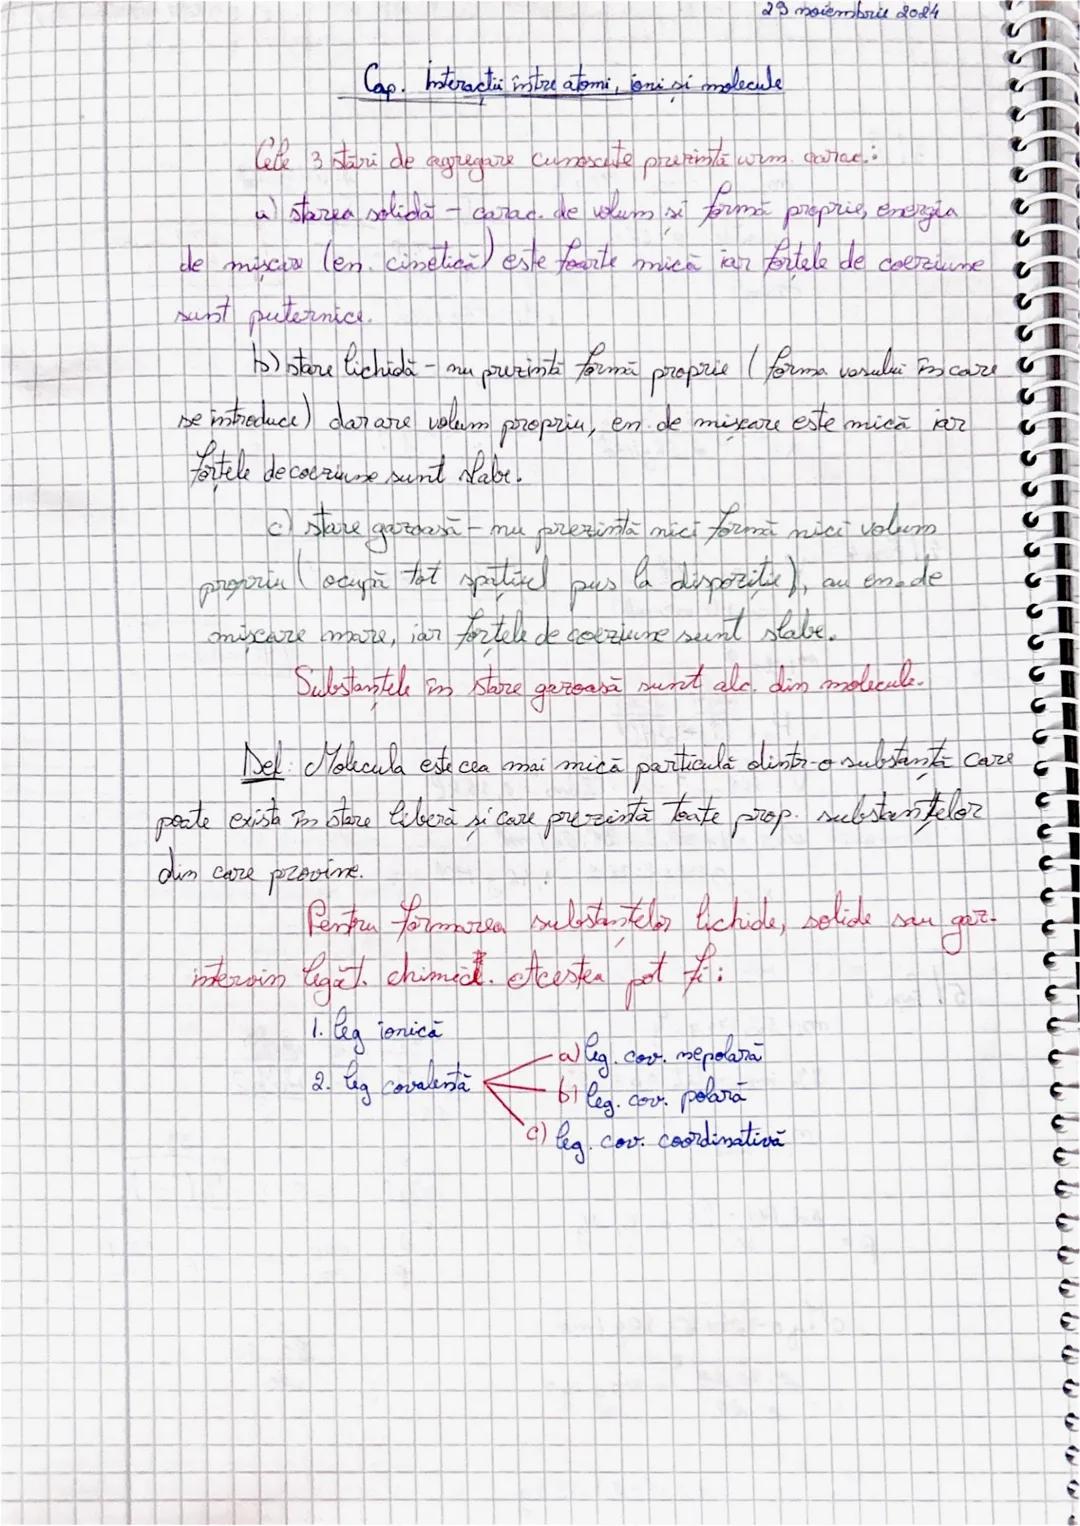 29 noiembrie 2024
Cap. Interacții între atomi, ioni și molecule
Cele 3 stări de agregare cunoscute prezintă urm. carac.:
a) starea solidă - carac. de volum și formă proprie, energia
de mișcare (en. cinetică) este foarte mică iar forțele de coeziune
sunt puternice.
b) stare lichidă - nu prezintă formă proprie (forma vasului în care
se introduce) dar are volum propriu, en. de mișcare este mică iar
forțele de coeziune sunt slabe.
c) stare gazoasă - nu prezintă nici formă nici volum
propriu (ocupă tot spațiul pus la dispoziție), au en. de
mișcare mare, iar forțele de coeziune sunt slabe.
Substanțele în stare gazoasă sunt alc. din molecule.
Def: Molecula este cea mai mică particulă dintr-o substanță care
poate exista în stare liberă și care prezintă toate prop. substanțelor
din care provine.
Pentru formarea substanțelor lichide, solide sau gaz.
intervin legăt. chimice. Acestea pot fi:
1. leg ionică
2. leg covalentă
a) leg. cov. nepolară
b) leg. cov. polară
c) leg. cov. coordinativă